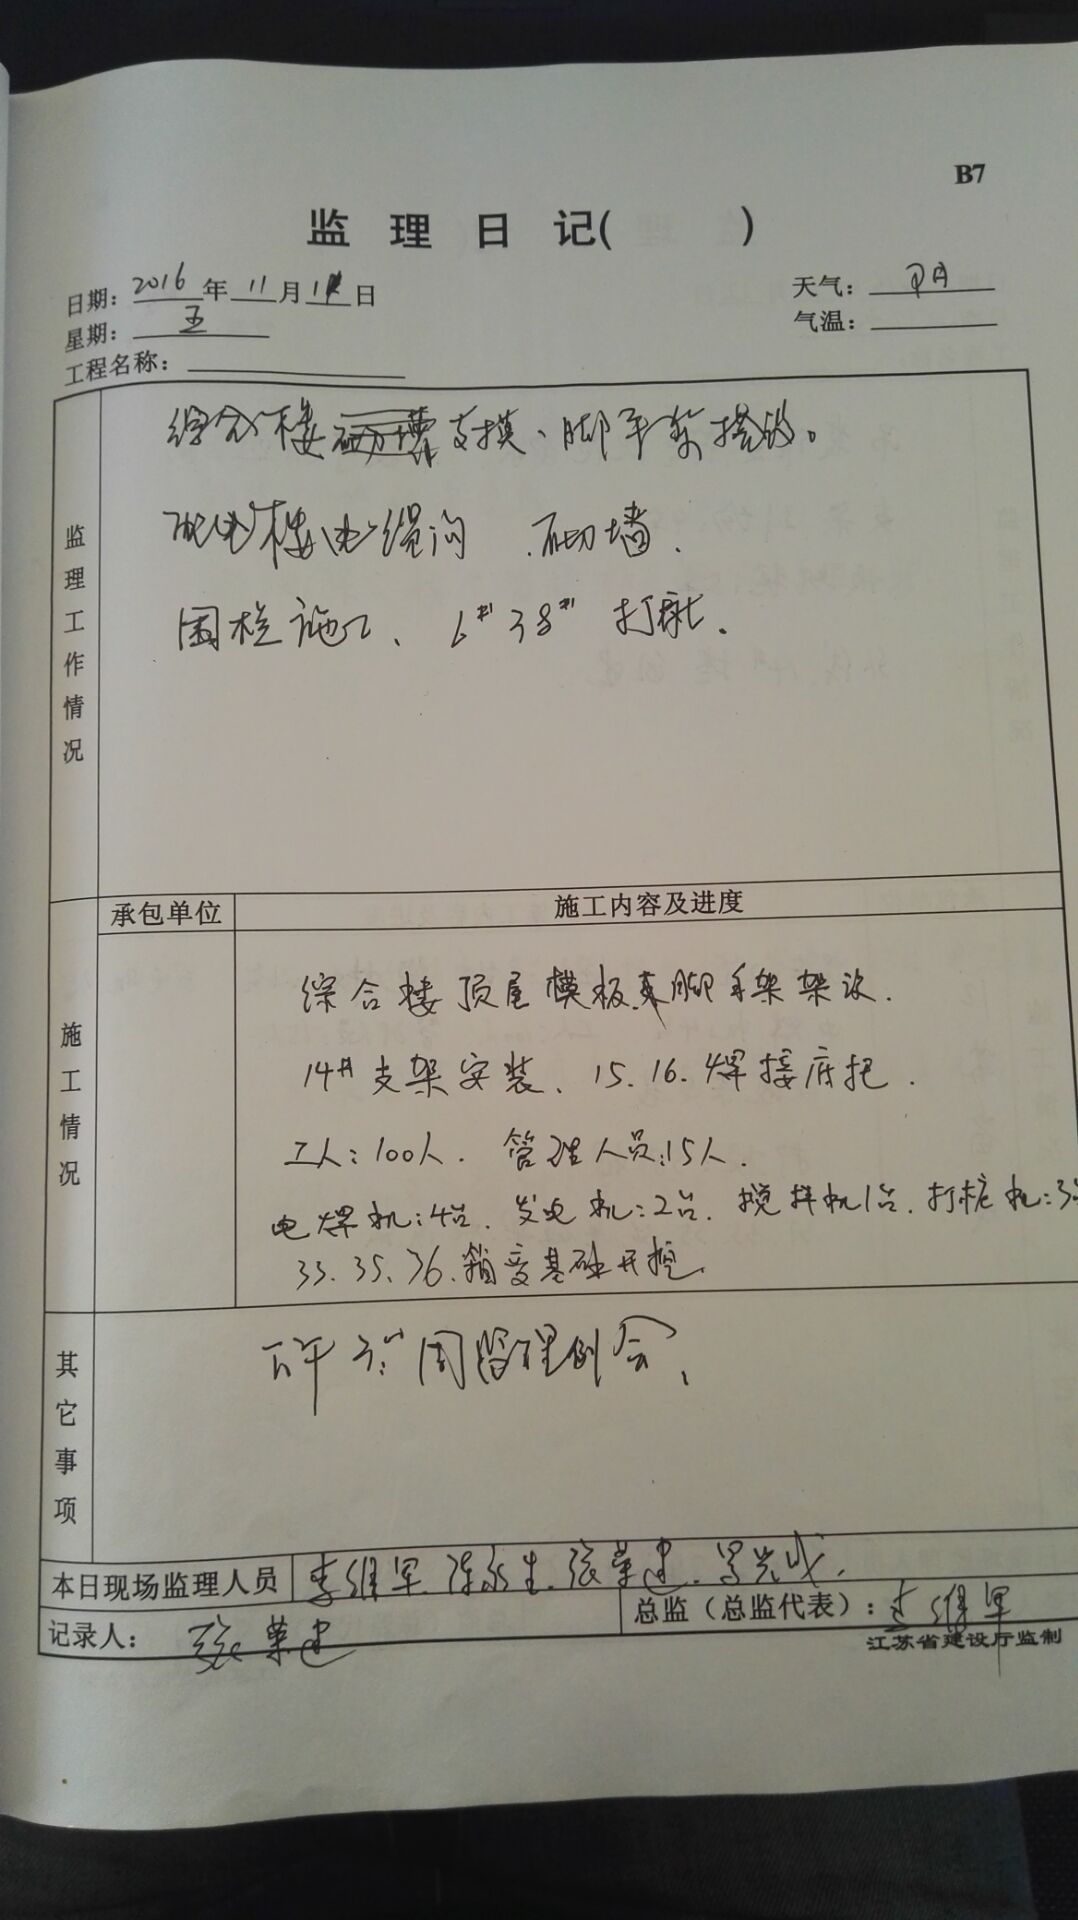 B7
监理日记( )
日期：2016年11月11日
天气：阴
星期：五
气温：
工程名称：
监理工作情况
综合楼支模、脚手架搭设。
配电楼电缆沟 .砌墙.
围栏施工、6# 38# 打桩.
承包单位 施工内容及进度
施工情况
综合楼顶屋模板脚手架架设.
14#支架安装、15.16.焊接底把.
工人：100人. 管理人员：15人.
电焊机：4台. 发电机：2台. 搅拌机1台. 打桩机：3
33.35.36.箱变基础开挖.
其它事项
下午 周监理例会、
本日现场监理人员 李维军.陈永生.张荣建.
记录人： 张荣建 总监（总监代表）：李维军
江苏省建设厅监制